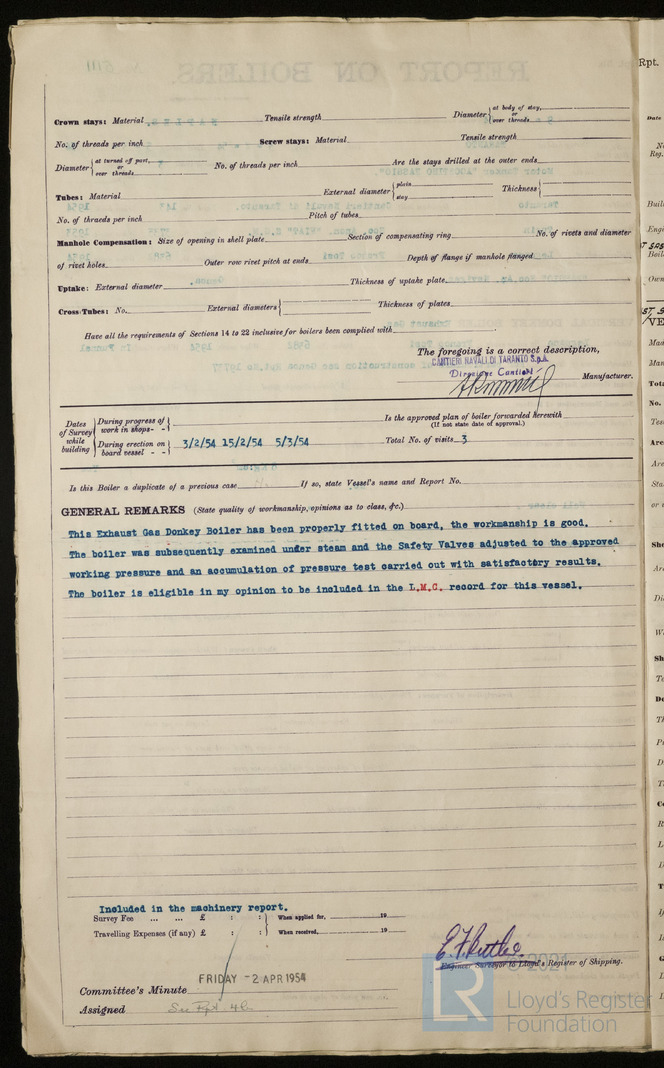 Crown stays: Material Tensile strength Diameter { at body of stay, or over threads
No. of threads per inch Screw stays: Material Tensile strength
Diameter { at turned off part, or over threads No. of threads per inch Are the stays drilled at the outer ends
Tubes: Material External diameter { plain stay Thickness {
No. of thraeds per inch Pitch of tubes
Manhole Compensation: Size of opening in shell plate Section of compensating ring No. of rivets and diameter
of rivet holes Outer row rivet pitch at ends Depth of flange if manhole flanged
Uptake: External diameter Thickness of uptake plate
Cross Tubes: No. External diameters { Thickness of plates
Have all the requirements of Sections 14 to 22 inclusive for boilers been complied with
The foregoing is a correct description,
CANTIERI NAVALI DI TARANTO S.p.A.
Direzione Cantieri
Manufacturer.
Dates of Survey while building { During progress of work in shops - - } Is the approved plan of boiler forwarded herewith
(If not state date of approval.)
{ During erection on board vessel - - } 3/2/54 15/2/54 5/3/54 Total No. of visits 3
Is this Boiler a duplicate of a previous case If so, state Vessel's name and Report No.
GENERAL REMARKS (State quality of workmanship, opinions as to class, &c.)
This Exhaust Gas Donkey Boiler has been properly fitted on board, the workmanship is good.
The boiler was subsequently examined under steam and the Safety Valves adjusted to the approved
working pressure and an accumulation of pressure test carried out with satisfactory results.
The boiler is eligible in my opinion to be included in the L.M.C. record for this vessel.
Included in the machinery report.
Survey Fee ... ... £ : : } When applied for, 19
Travelling Expenses (if any) £ : : } When received, 19
Engineer Surveyor to Lloyd's Register of Shipping.
FRIDAY -2 APR 1954
Committee's Minute
Assigned See Rpt. 4b
Lloyd's Register
Foundation